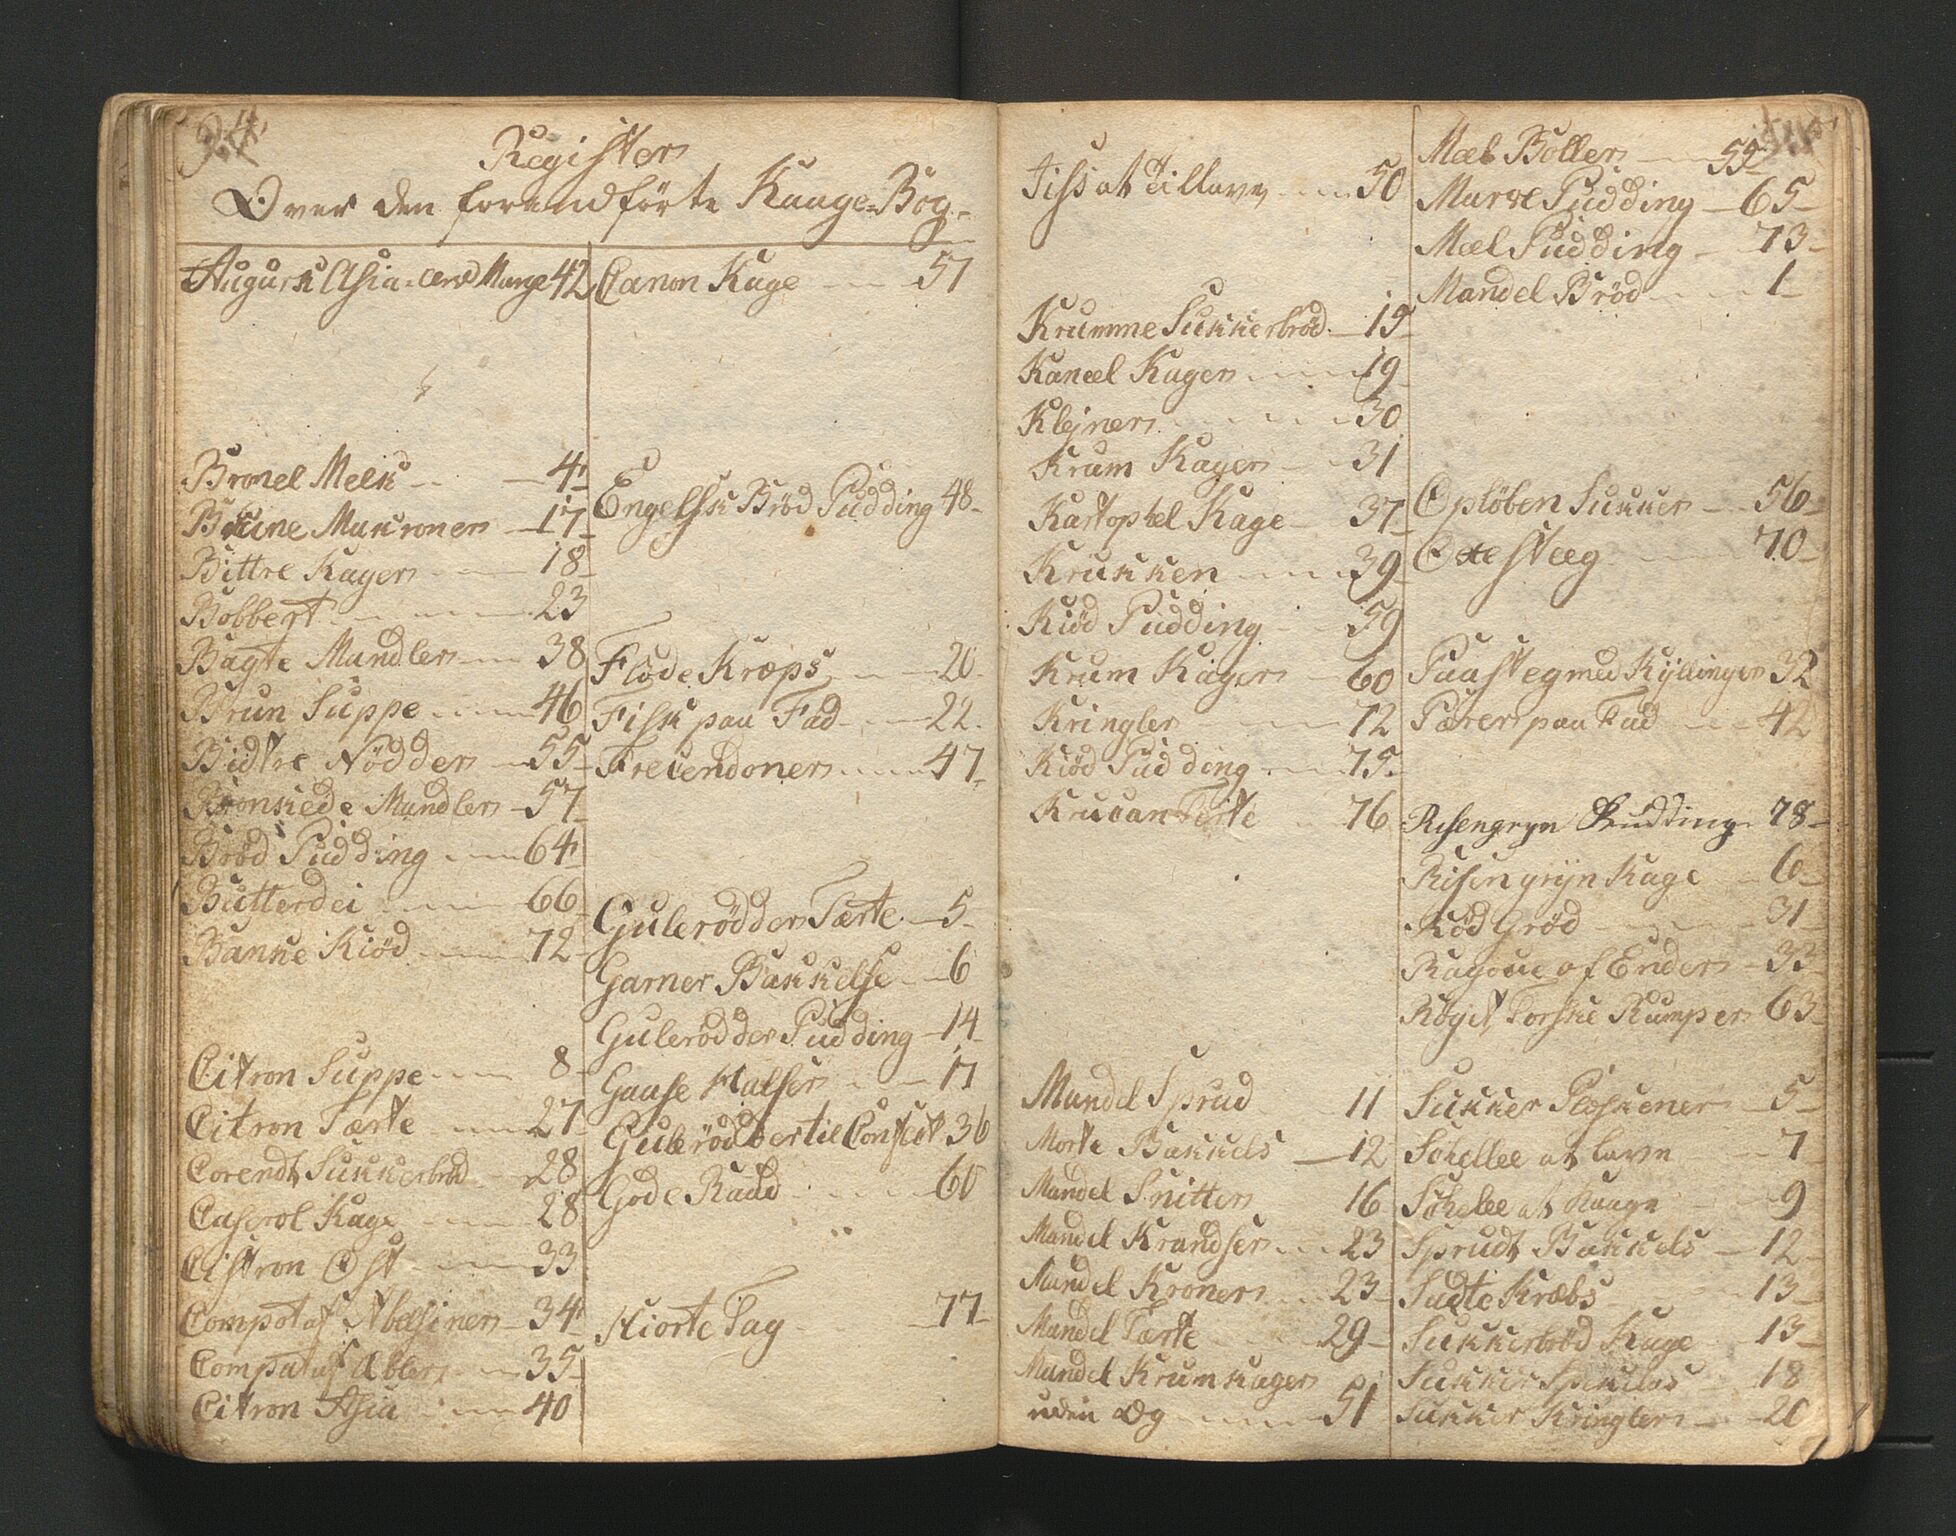 94
Register
Over den forendførte Kaage-Bog.
August Asia 42
Bronel Melk 4
Brune Makroner 17
Bittre Kager 18
Bobbert 23
Bagte Mandler 38
Brun Suppe 46
Bidtre Nödder 55
Mandler 57
Bröd Pudding 64
Butterdei 66
Banke Kiöd 72
Citron Suppe 8
Citron Tærte 27
Corendt Sukkerbröd 28
Caserol Kage 28
Cistron Ost 33
Compot af Abesiner 34
Compot af Æbler 35
Citron Asia 40
Canon Kage 57
Engelsk Bröd Pudding 48
Flöde Kræps 20
Fisk paa Fad 22
Frecendoner 47
Gulerödder Tærte 5
Garner Bakkelse 6
Gulerödder Pudding 14
Gaase Halser 17
Gulerödder til Confect 36
Gode Raad 60
Hiorte Tag 77
Tiss at tillave 50
Krumme Sukkerbröd 15
Kaneel Kager 19
Klejner 30
Krum Kager 31
Kartophel Kage 37
Krukken 39
Kiöd Pudding 59
Krum Kager 60
Kringler 72
Kiöd Pudding 75
Krucan Tærte 76
Mandel Sprud 11
Morte Bakkels 12
Mandel Snitter 16
Mandel Krandser 23
Mandel Kroner 23
Mandel Tærte 29
Mandel Krumkager
uden Æg 51
Mæl Boller 55
Marve Pudding 65
Mæl Pudding 73
Mandel Bröd 1
Opløben Sukker 56
Oxe Stæg 70
Paa Steg med Kyllinger 32
Pærer paa Fad 42
Risengryn Pudding 78
Risingryn Kage 6
Röd Gröd 31
Ragoue af Ender 33
Røgit Torske Rumper 63
Sukker Pleskener 5
Sökellee at lave 7
Sökelee at kaage 9
Sprudt Bakkels 12
Sudte Kræbs 13
Sukkerbröd Kage 13
Sukker Spekulas 18
Sukker Kringler 20